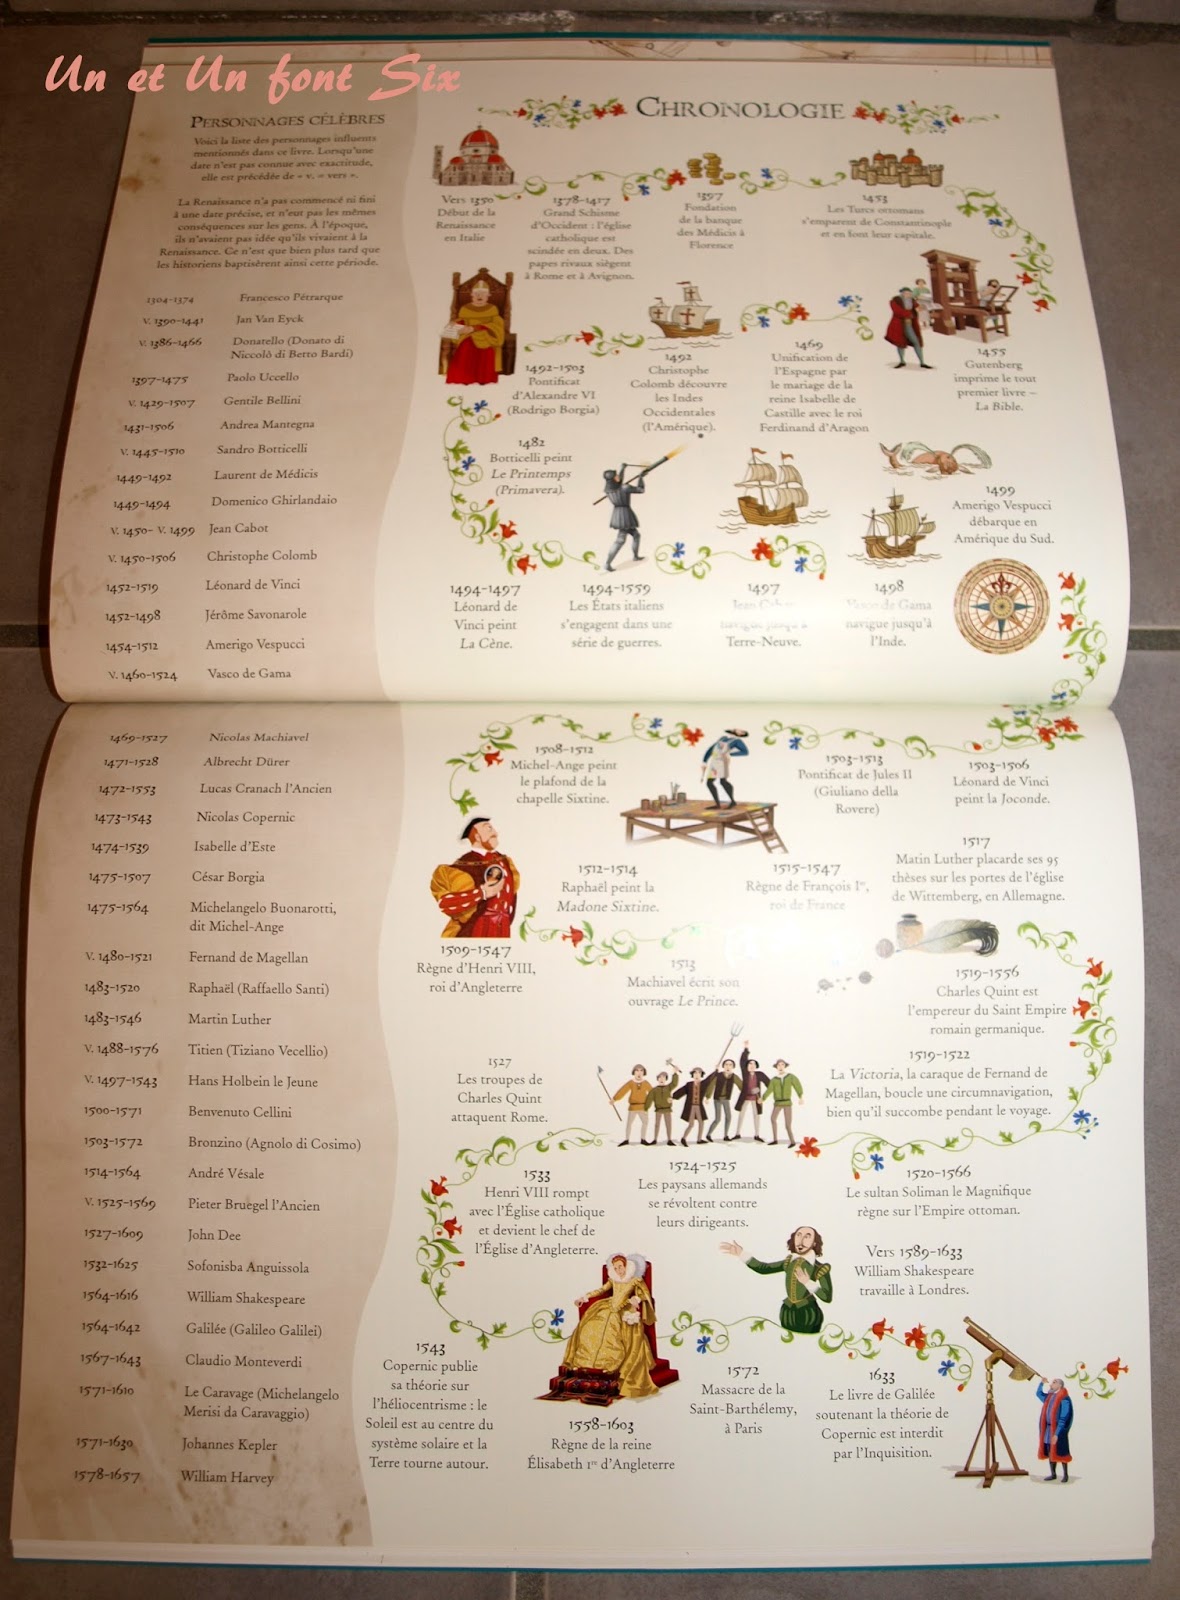 Un et Un font Six
PERSONNAGES CÉLÈBRES
Voici la liste des personnages influents
mentionnés dans ce livre. Lorsqu'une
date n'est pas connue avec exactitude,
elle est précédée de « v. = vers ».
La Renaissance n'a pas commencé ni fini
à une date précise, et n'eut pas les mêmes
conséquences sur les gens. À l'époque,
ils n'avaient pas idée qu'ils vivaient à la
Renaissance. Ce n'est que bien plus tard que
les historiens baptisèrent ainsi cette période.
1304-1374 Francesco Pétrarque
V. 1390-1441 Jan Van Eyck
V. 1386-1466 Donatello (Donato di
Niccolò di Betto Bardi)
1397-1475 Paolo Uccello
V. 1429-1507 Gentile Bellini
1431-1506 Andrea Mantegna
V. 1445-1510 Sandro Botticelli
1449-1492 Laurent de Médicis
1449-1494 Domenico Ghirlandaio
V. 1450- V. 1499 Jean Cabot
V. 1450-1506 Christophe Colomb
1452-1519 Léonard de Vinci
1452-1498 Jérôme Savonarole
1454-1512 Amerigo Vespucci
V. 1460-1524 Vasco de Gama
CHRONOLOGIE
Vers 1350
Début de la
Renaissance
en Italie
1378-1417
Grand Schisme
d'Occident : l'église
catholique est
scindée en deux. Des
papes rivaux siègent
à Rome et à Avignon.
1397
Fondation
de la banque
des Médicis à
Florence
1453
Les Turcs ottomans
s'emparent de Constantinople
et en font leur capitale.
1492-1503
Pontificat
d'Alexandre VI
(Rodrigo Borgia)
1492
Christophe
Colomb découvre
les Indes
Occidentales
(l'Amérique).
1469
Unification de
l'Espagne par
le mariage de la
reine Isabelle de
Castille avec le roi
Ferdinand d'Aragon
1455
Gutenberg
imprime le tout
premier livre –
La Bible.
1482
Botticelli peint
Le Printemps
(Primavera).
1499
Amerigo Vespucci
débarque en
Amérique du Sud.
1494-1497
Léonard de
Vinci peint
La Cène.
1494-1559
Les États italiens
s'engagent dans une
série de guerres.
1497
Jean Cabot
navigue jusqu'à
Terre-Neuve.
1498
Vasco de Gama
navigue jusqu'à
l'Inde.
1469-1527 Nicolas Machiavel
1471-1528 Albrecht Dürer
1472-1553 Lucas Cranach l'Ancien
1473-1543 Nicolas Copernic
1474-1539 Isabelle d'Este
1475-1507 César Borgia
1475-1564 Michelangelo Buonarotti,
dit Michel-Ange
V. 1480-1521 Fernand de Magellan
1483-1520 Raphaël (Raffaello Santi)
1483-1546 Martin Luther
V. 1488-1576 Titien (Tiziano Vecellio)
V. 1497-1543 Hans Holbein le Jeune
1500-1571 Benvenuto Cellini
1503-1572 Bronzino (Agnolo di Cosimo)
1514-1564 André Vésale
V. 1525-1569 Pieter Bruegel l'Ancien
1527-1609 John Dee
1532-1625 Sofonisba Anguissola
1564-1616 William Shakespeare
1564-1642 Galilée (Galileo Galilei)
1567-1643 Claudio Monteverdi
1571-1610 Le Caravage (Michelangelo
Merisi da Caravaggio)
1571-1630 Johannes Kepler
1578-1657 William Harvey
1508-1512
Michel-Ange peint
le plafond de la
chapelle Sixtine.
1503-1513
Pontificat de Jules II
(Giuliano della
Rovere)
1503-1506
Léonard de Vinci
peint la Joconde.
1512-1514
Raphaël peint la
Madone Sixtine.
1515-1547
Règne de François Ier,
roi de France
1517
Matin Luther placarde ses 95
thèses sur les portes de l'église
de Wittemberg, en Allemagne.
1509-1547
Règne d'Henri VIII,
roi d'Angleterre
1513
Machiavel écrit son
ouvrage Le Prince.
1519-1556
Charles Quint est
l'empereur du Saint Empire
romain germanique.
1527
Les troupes de
Charles Quint
attaquent Rome.
1519-1522
La Victoria, la caraque de Fernand de
Magellan, boucle une circumnavigation,
bien qu'il succombe pendant le voyage.
1533
Henri VIII rompt
avec l'Église catholique
et devient le chef de
l'Église d'Angleterre.
1524-1525
Les paysans allemands
se révoltent contre
leurs dirigeants.
1520-1566
Le sultan Soliman le Magnifique
règne sur l'Empire ottoman.
Vers 1589-1633
William Shakespeare
travaille à Londres.
1543
Copernic publie
sa théorie sur
l'héliocentrisme : le
Soleil est au centre du
système solaire et la
Terre tourne autour.
1558-1603
Règne de la reine
Élisabeth Ire d'Angleterre
1572
Massacre de la
Saint-Barthélemy,
à Paris
1633
Le livre de Galilée
soutenant la théorie de
Copernic est interdit
par l'Inquisition.